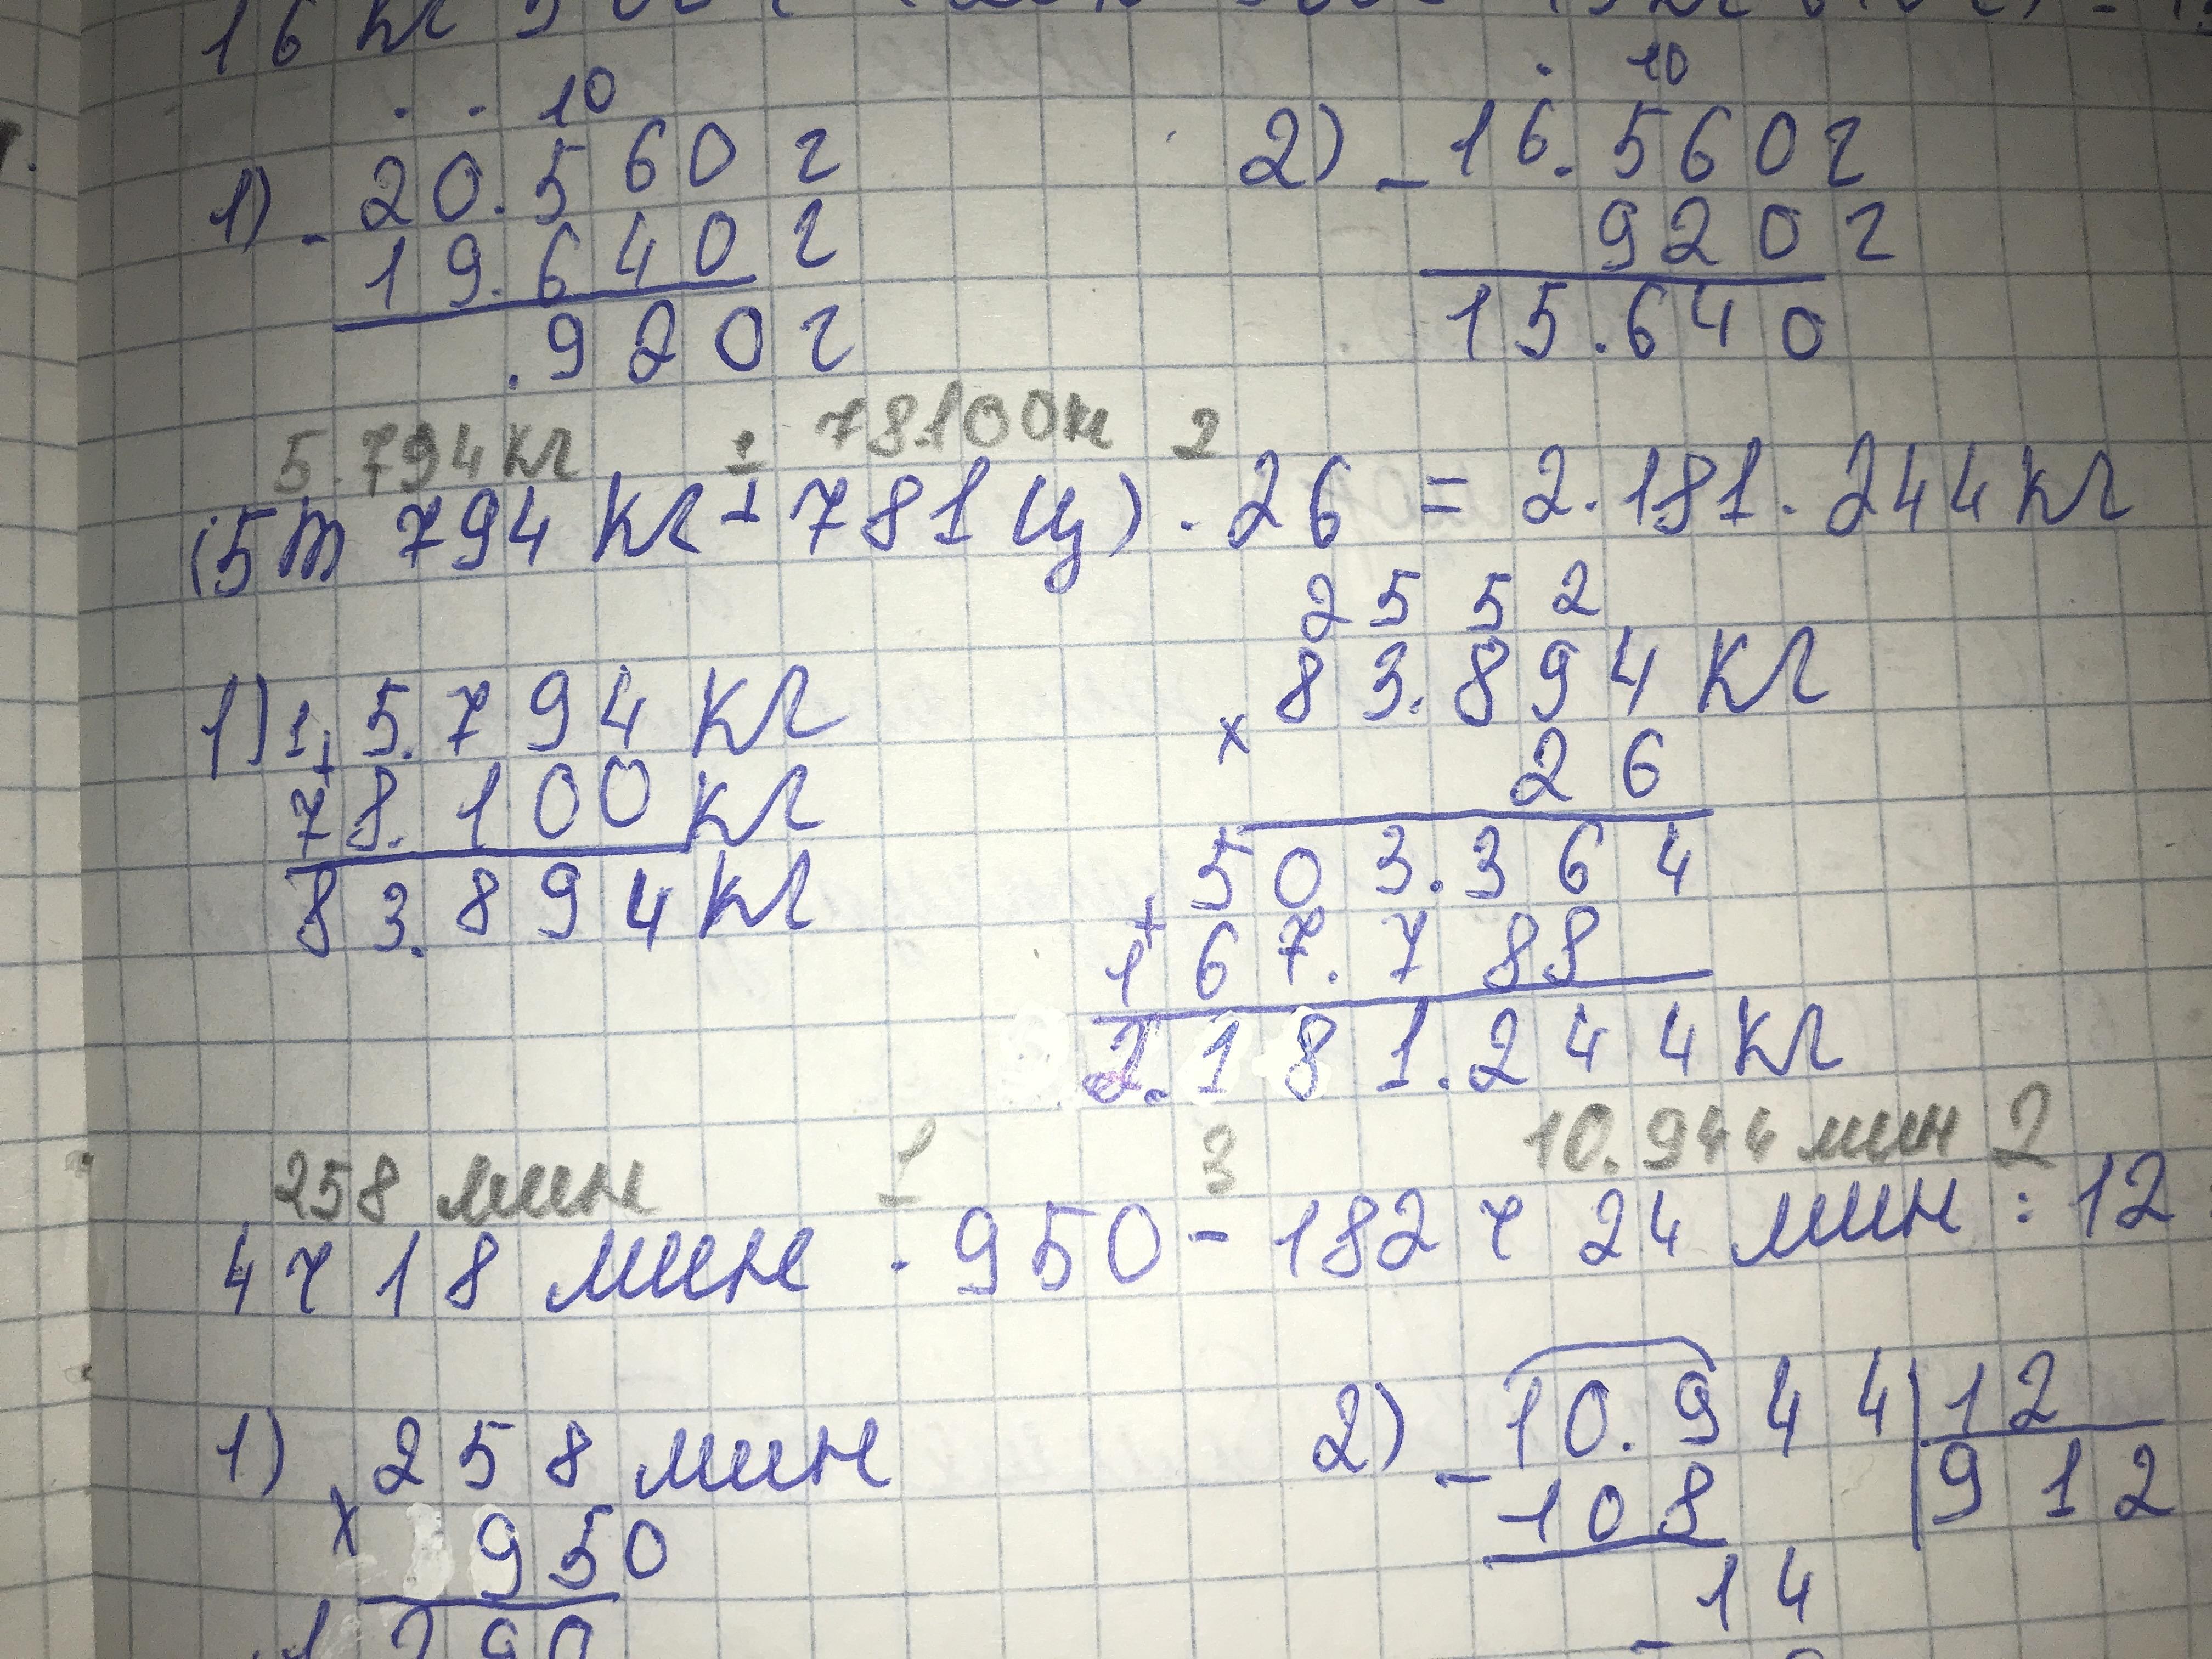 1) - 20.560 г
10
19.640 г
.920 г
2) - 16.560 г
10
920 г
15.640
5.794 кг + 78.100 кг 2
(5 т 794 кг + 781 ц) · 26 = 2.181.244 кг
1) 1 + 5.794 кг
78.100 кг
83.894 кг
2552
× 83.894 кг
26
+ 503.364
167.788
2.181.244 кг
258 мин 1 3 10.944 мин 2
4 ч 18 мин · 950 - 182 ч 24 мин : 12
1) × 258 мин
950
2) - 10.944 | 12
108 912
- 14